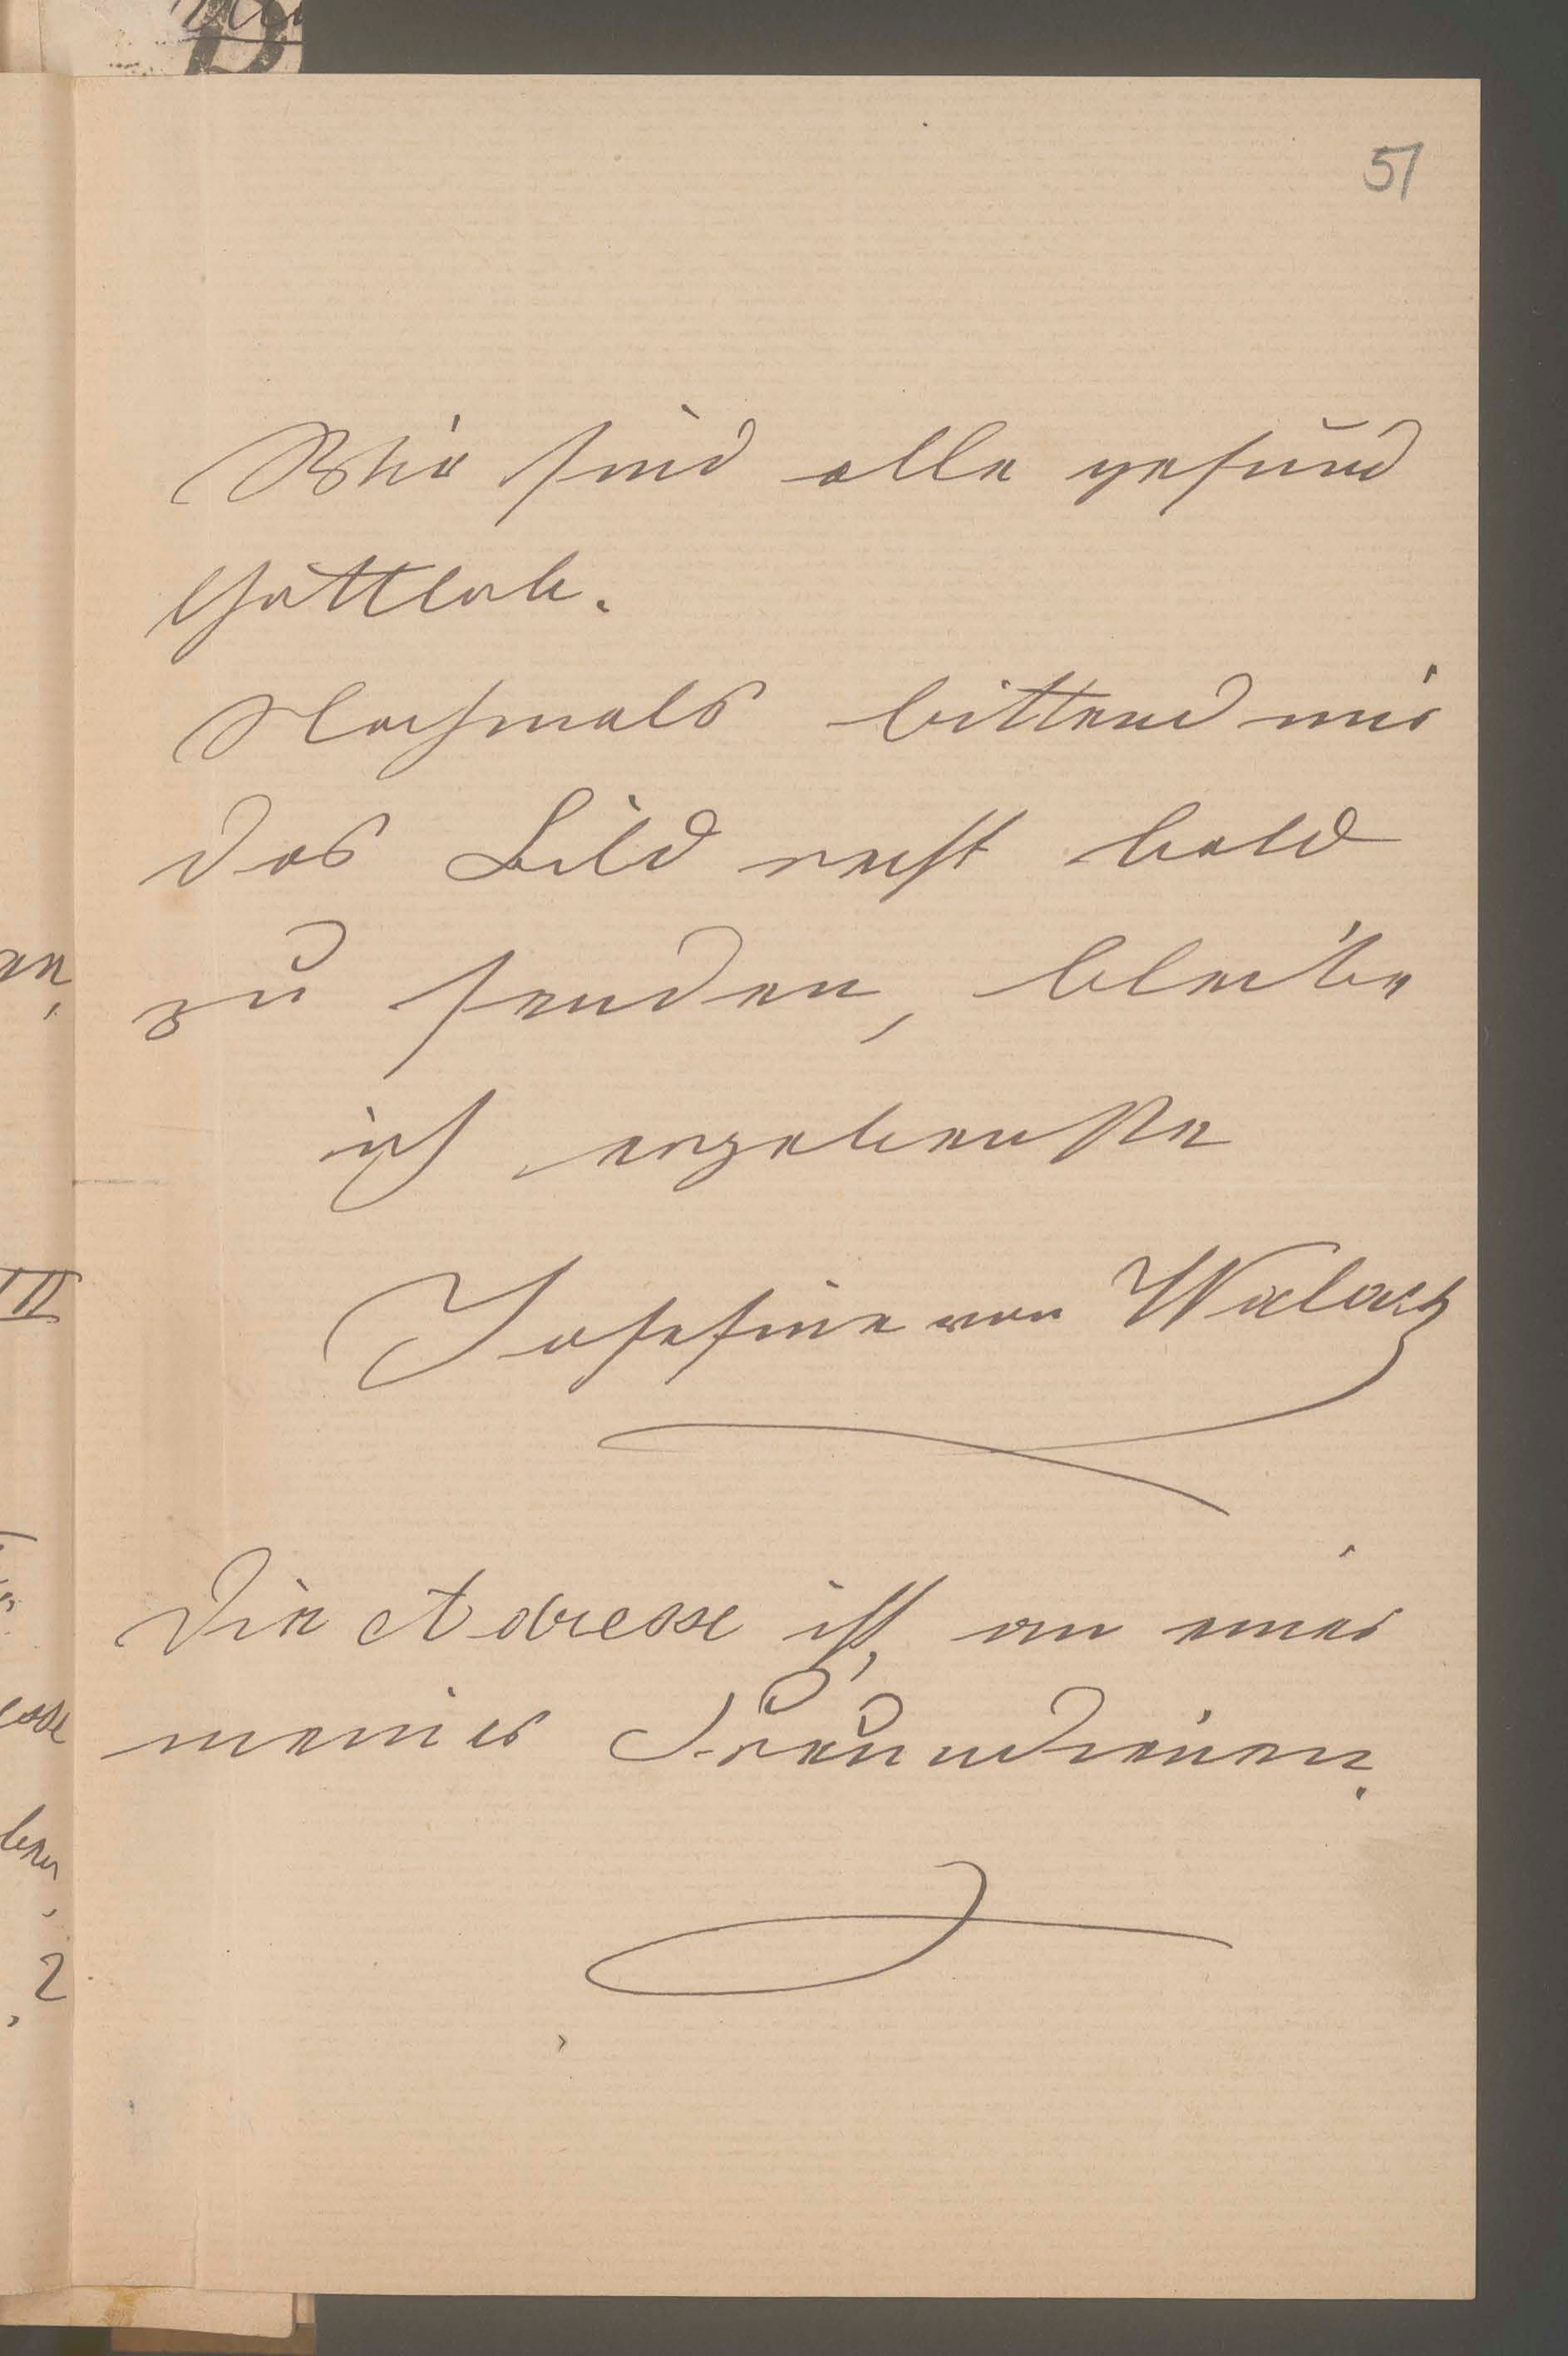 51
Wir sind alle gesund
Gottlob.
Nochmals bittend mir
das Bild recht bald
zu senden, bleibe
ich ergebenste
Josefine von
Die Adresse ist, an einer
meiner Freundinen.